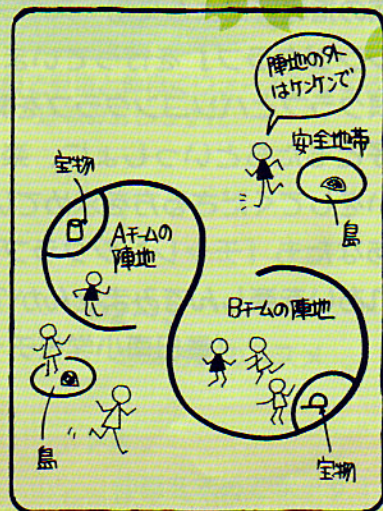 陣地の外
はケンケンで
安全地帯
島
宝物
Aチームの
陣地
Bチームの陣地
島
宝物